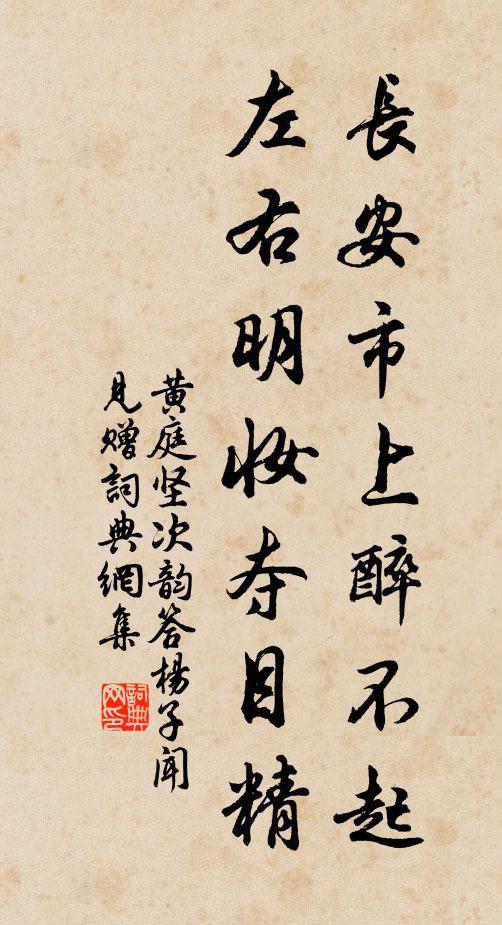 長安市上醉不起
左右明妆夺目精
黄庭坚次韵答楊子闻
見赠詞典網集
詞典
网印